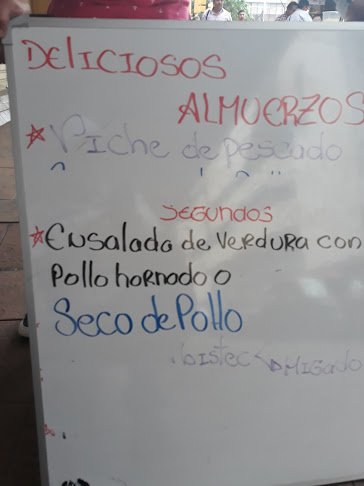 DELICIOSOS
ALMUERZOS
Viche de pescado
SEGUNDOS
Ensalada de verdura con
Pollo hornodo o
Seco de Pollo
bistec